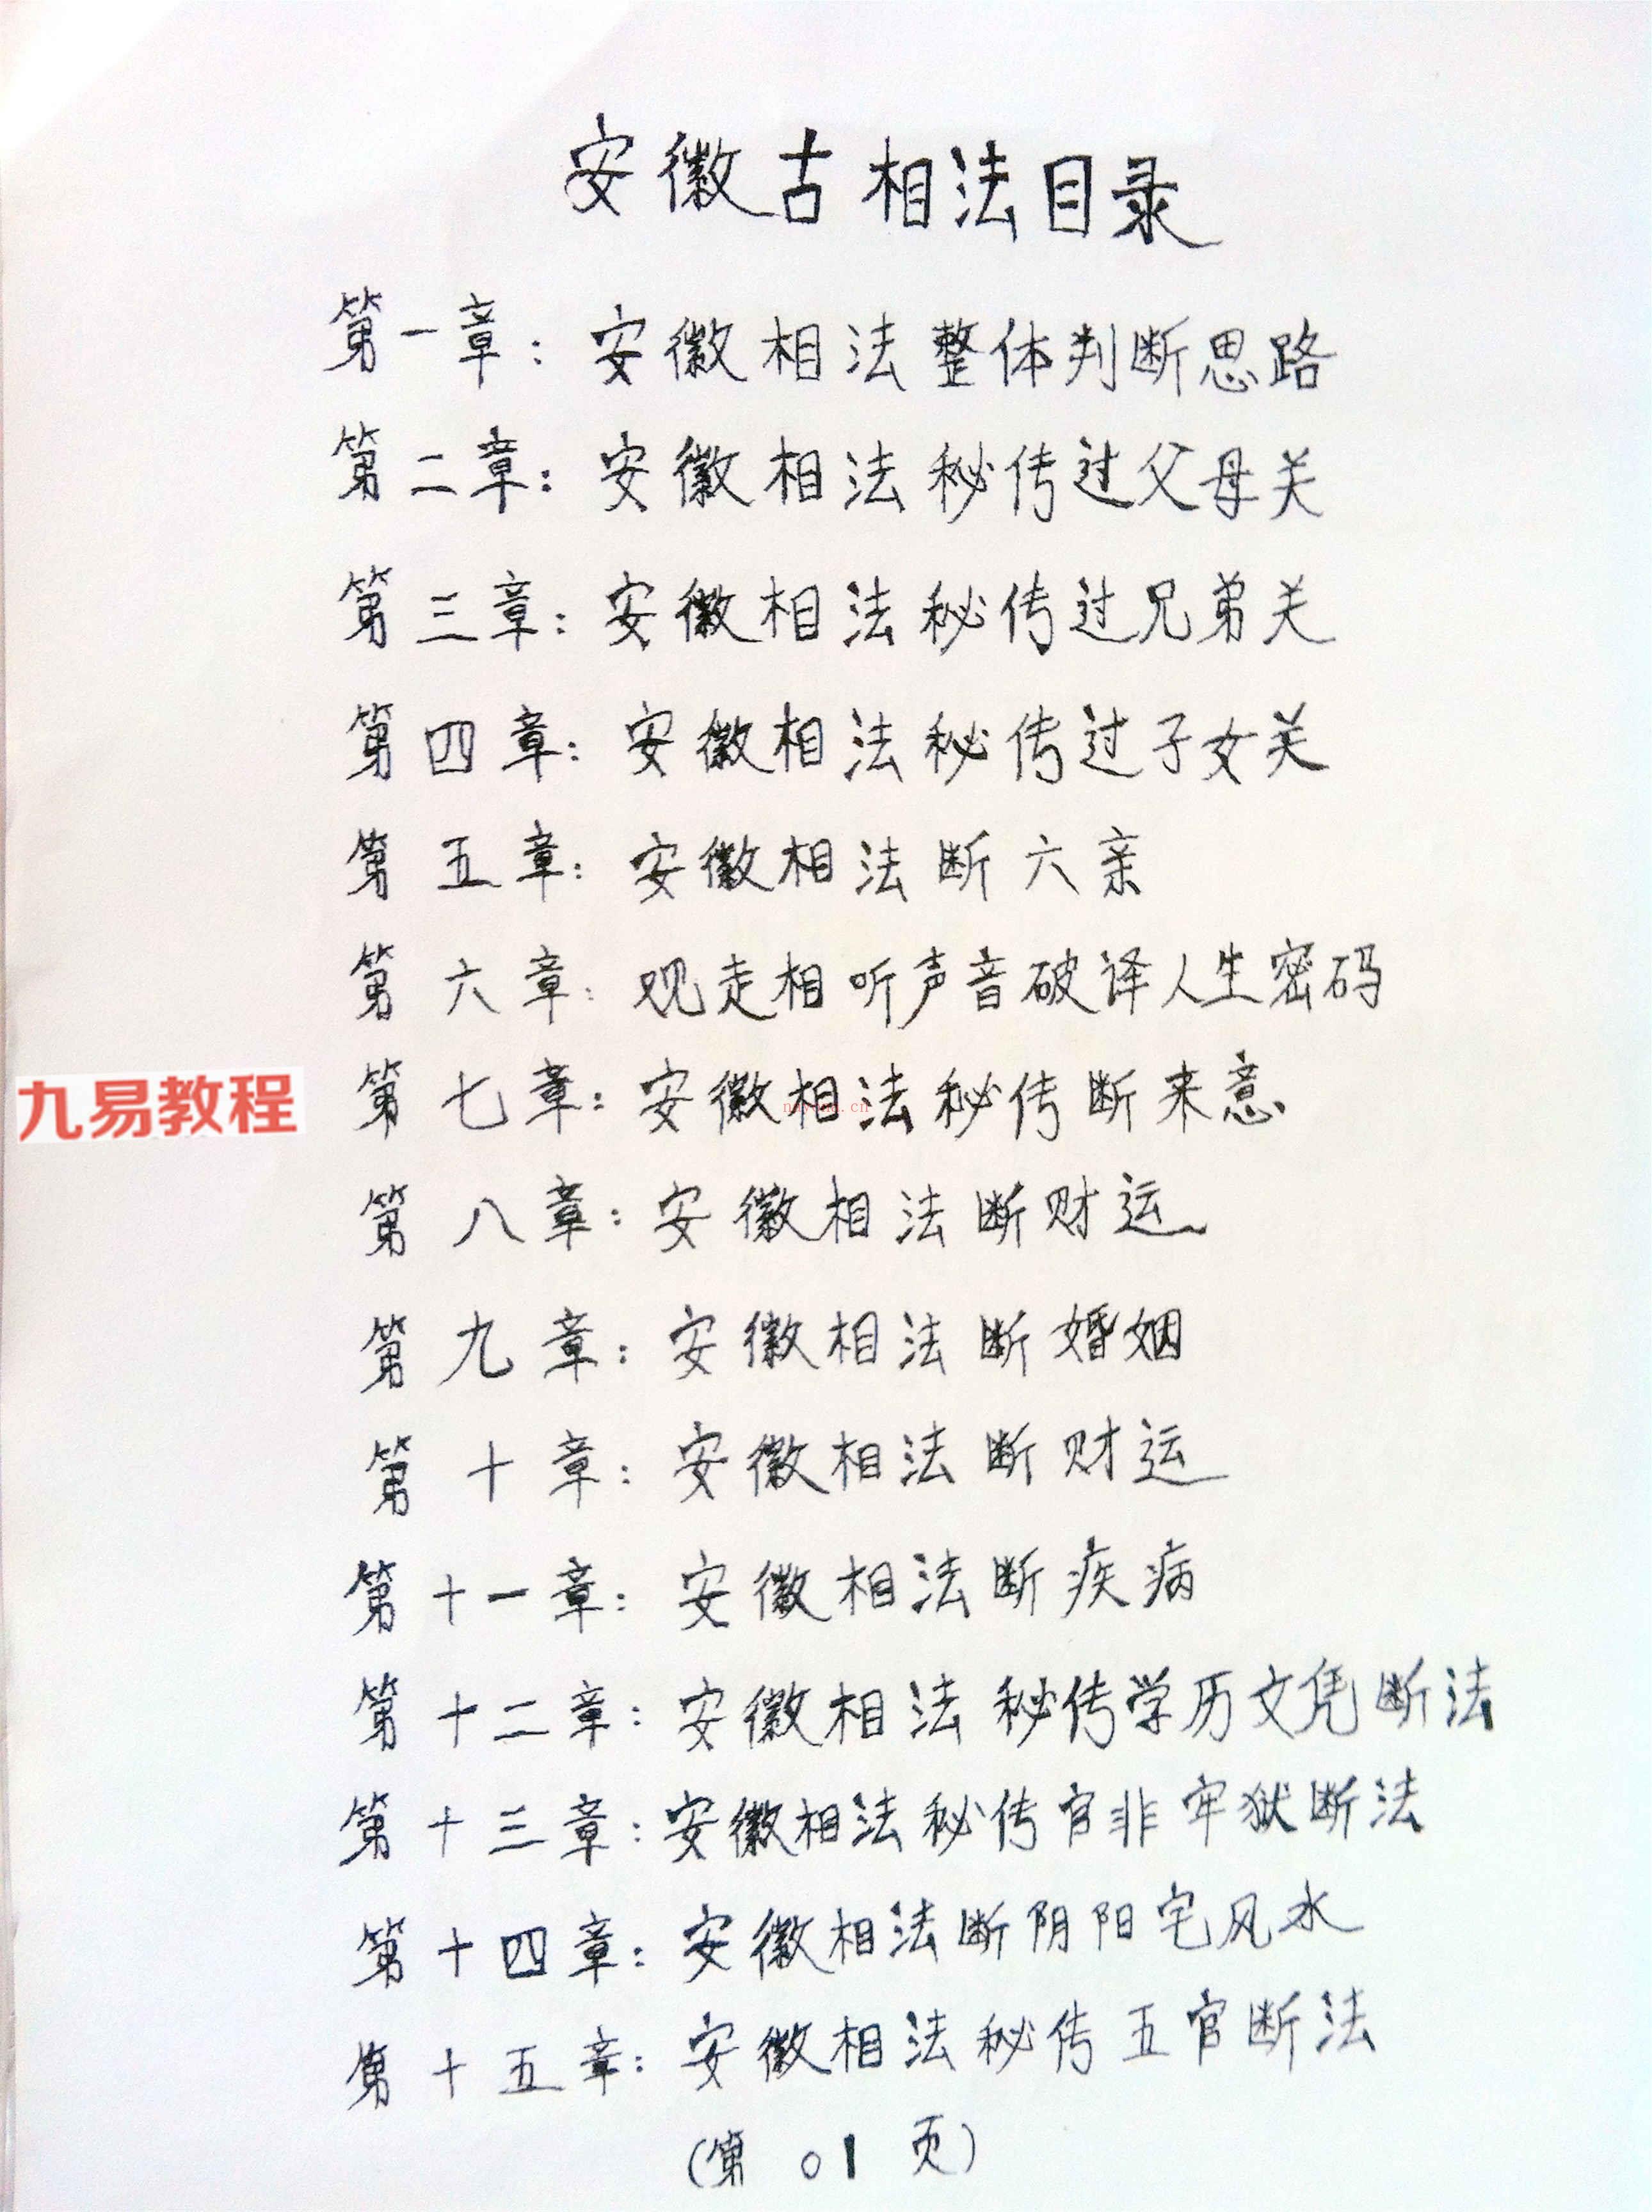 安徽古相法目录
第一章：安徽相法整体判断思路
第二章：安徽相法秘传过父母关
第三章：安徽相法秘传过兄弟关
第四章：安徽相法秘传过子女关
第五章：安徽相法断六亲
第六章：观走相听声音破译人生密码
九易教程
第七章：安徽相法秘传断来意
第八章：安徽相法断财运
第九章：安徽相法断婚姻
第十章：安徽相法断财运
第十一章：安徽相法断疾病
第十二章：安徽相法秘传学历文凭断法
第十三章：安徽相法秘传官非牢狱断法
第十四章：安徽相法断阴阳宅风水
第十五章：安徽相法秘传五官断法
(第01页)